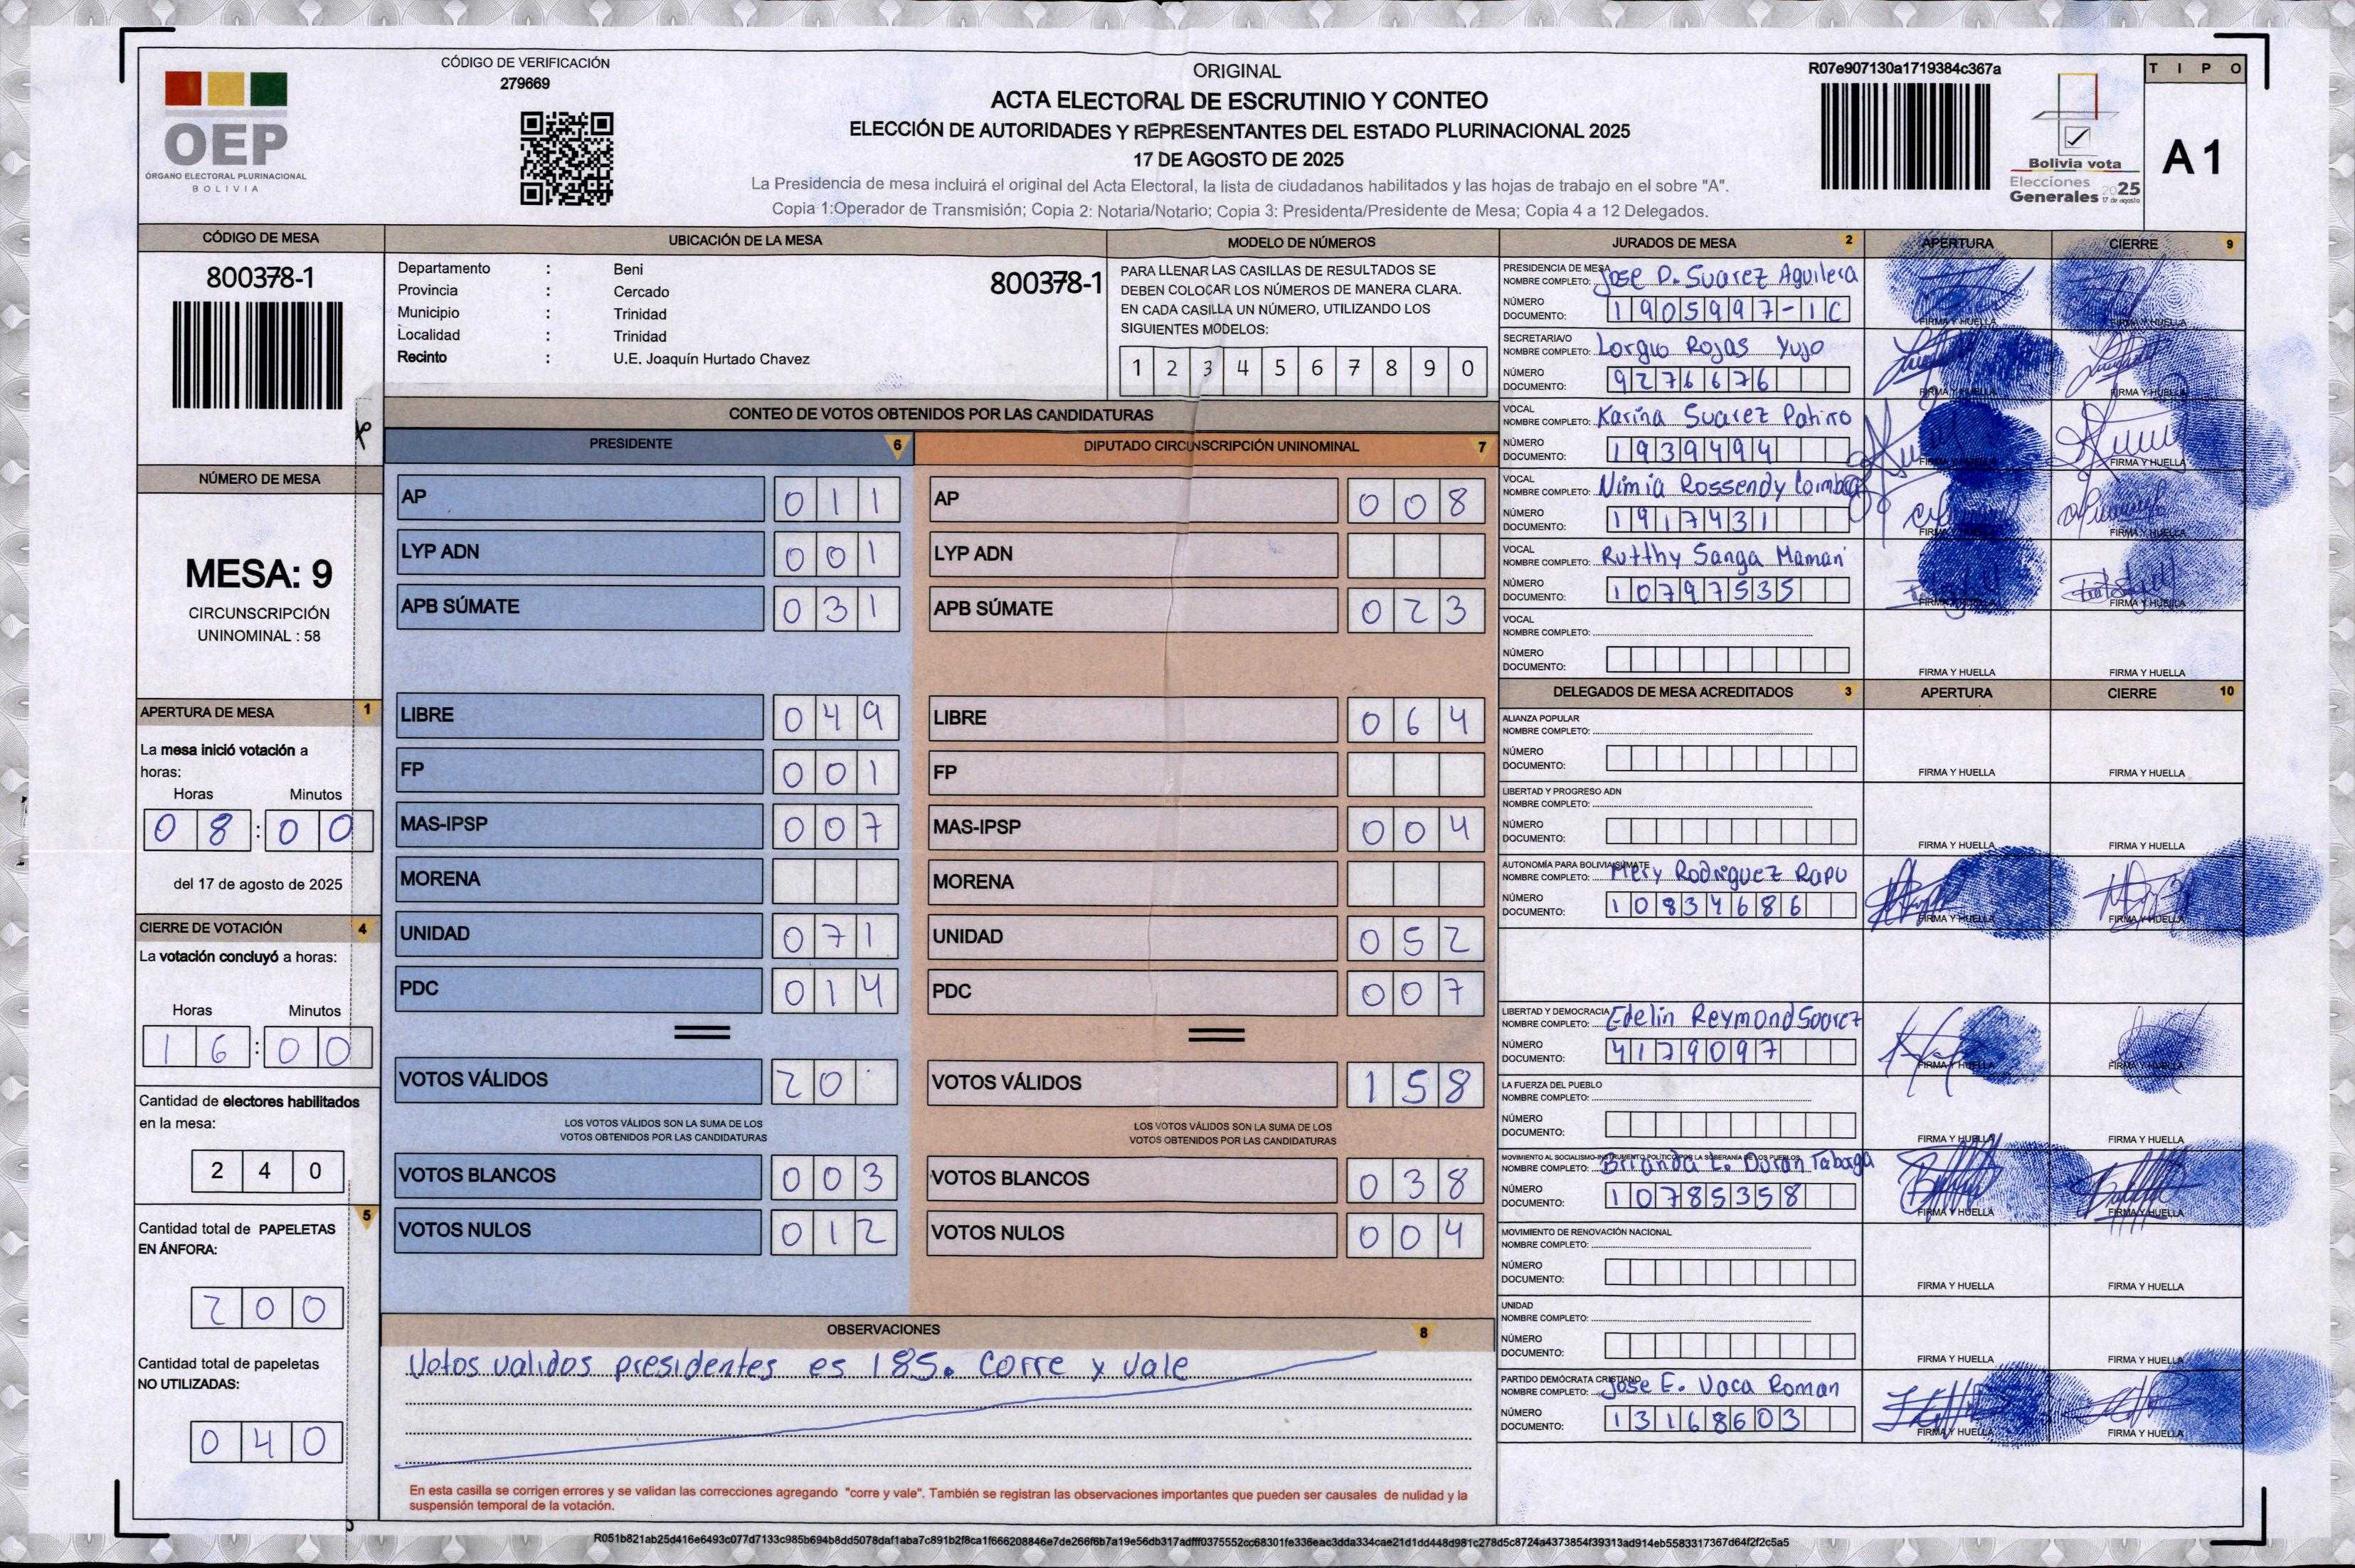 CÓDIGO DE VERIFICACIÓN
279669
OEP
ÓRGANO ELECTORAL PLURINACIONAL
BOLIVIA
ORIGINAL
ACTA ELECTORAL DE ESCRUTINIO Y CONTEO
ELECCIÓN DE AUTORIDADES Y REPRESENTANTES DEL ESTADO PLURINACIONAL 2025
17 DE AGOSTO DE 2025
La Presidencia de mesa incluirá el original del Acta Electoral, la lista de ciudadanos habilitados y las hojas de trabajo en el sobre "A".
Copia 1:Operador de Transmisión; Copia 2: Notaria/Notario; Copia 3: Presidenta/Presidente de Mesa; Copia 4 a 12 Delegados.
R07e907130a1719384c367a
Bolivia vota
Elecciones
Generales 2025
17 de agosto
TIPO
A1
CÓDIGO DE MESA
800378-1
UBICACIÓN DE LA MESA
Departamento : Beni
Provincia : Cercado
Municipio : Trinidad
Localidad : Trinidad
Recinto : U.E. Joaquín Hurtado Chavez
800378-1
MODELO DE NÚMEROS
PARA LLENAR LAS CASILLAS DE RESULTADOS SE
DEBEN COLOCAR LOS NÚMEROS DE MANERA CLARA.
EN CADA CASILLA UN NÚMERO, UTILIZANDO LOS
SIGUIENTES MODELOS:
1 2 3 4 5 6 7 8 9 0
NÚMERO DE MESA
MESA: 9
CIRCUNSCRIPCIÓN
UNINOMINAL : 58
APERTURA DE MESA 1
La mesa inició votación a
horas:
Horas Minutos
08:00
del 17 de agosto de 2025
CIERRE DE VOTACIÓN 4
La votación concluyó a horas:
Horas Minutos
16:00
Cantidad de electores habilitados
en la mesa:
240
5
Cantidad total de PAPELETAS
EN ÁNFORA:
200
Cantidad total de papeletas
NO UTILIZADAS:
040
CONTEO DE VOTOS OBTENIDOS POR LAS CANDIDATURAS
PRESIDENTE 6
AP 011
LYP ADN 001
APB SÚMATE 031
LIBRE 049
FP 001
MAS-IPSP 007
MORENA
UNIDAD 071
PDC 014
VOTOS VÁLIDOS 20
LOS VOTOS VÁLIDOS SON LA SUMA DE LOS
VOTOS OBTENIDOS POR LAS CANDIDATURAS
VOTOS BLANCOS 003
VOTOS NULOS 012
DIPUTADO CIRCUNSCRIPCIÓN UNINOMINAL 7
AP 008
LYP ADN
APB SÚMATE 023
LIBRE 064
FP
MAS-IPSP 004
MORENA
UNIDAD 052
PDC 007
VOTOS VÁLIDOS 158
LOS VOTOS VÁLIDOS SON LA SUMA DE LOS
VOTOS OBTENIDOS POR LAS CANDIDATURAS
VOTOS BLANCOS 038
VOTOS NULOS 004
OBSERVACIONES 8
Votos validos presidentes es 185. Corre y vale
En esta casilla se corrigen errores y se validan las correcciones agregando "corre y vale". También se registran las observaciones importantes que pueden ser causales de nulidad y la
suspensión temporal de la votación.
JURADOS DE MESA 2 APERTURA CIERRE 9
PRESIDENCIA DE MESA
NOMBRE COMPLETO: Jose D. Suarez Aguilera
NÚMERO
DOCUMENTO: 1905997-1C
FIRMA Y HUELLA FIRMA Y HUELLA
SECRETARIA/O
NOMBRE COMPLETO: Lorgio Rojas Yujo
NÚMERO
DOCUMENTO: 9276676
FIRMA Y HUELLA FIRMA Y HUELLA
VOCAL
NOMBRE COMPLETO: Karina Suarez Patiño
NÚMERO
DOCUMENTO: 1939494
FIRMA Y HUELLA FIRMA Y HUELLA
VOCAL
NOMBRE COMPLETO: Nimia Rossendy Coimbra
NÚMERO
DOCUMENTO: 1917431
FIRMA Y HUELLA FIRMA Y HUELLA
VOCAL
NOMBRE COMPLETO: Rutthy Sanga Mamani
NÚMERO
DOCUMENTO: 10797535
FIRMA Y HUELLA FIRMA Y HUELLA
VOCAL
NOMBRE COMPLETO:
NÚMERO
DOCUMENTO:
FIRMA Y HUELLA FIRMA Y HUELLA
DELEGADOS DE MESA ACREDITADOS 3 APERTURA CIERRE 10
ALIANZA POPULAR
NOMBRE COMPLETO:
NÚMERO
DOCUMENTO:
FIRMA Y HUELLA FIRMA Y HUELLA
LIBERTAD Y PROGRESO ADN
NOMBRE COMPLETO:
NÚMERO
DOCUMENTO:
FIRMA Y HUELLA FIRMA Y HUELLA
AUTONOMÍA PARA BOLIVIA SÚMATE
NOMBRE COMPLETO: Mery Rodriguez Rapu
NÚMERO
DOCUMENTO: 10834686
FIRMA Y HUELLA FIRMA Y HUELLA
LIBERTAD Y DEMOCRACIA
NOMBRE COMPLETO: Edelin Reymond Suarez
NÚMERO
DOCUMENTO: 4179097
FIRMA Y HUELLA
LA FUERZA DEL PUEBLO
NOMBRE COMPLETO:
NÚMERO
DOCUMENTO:
FIRMA Y HUELLA FIRMA Y HUELLA
MOVIMIENTO AL SOCIALISMO-INSTRUMENTO POLÍTICO POR LA SOBERANÍA DE LOS PUEBLOS
NOMBRE COMPLETO: Brianda L. Duran Taborga
NÚMERO
DOCUMENTO: 10785358
FIRMA Y HUELLA FIRMA Y HUELLA
MOVIMIENTO DE RENOVACIÓN NACIONAL
NOMBRE COMPLETO:
NÚMERO
DOCUMENTO:
FIRMA Y HUELLA FIRMA Y HUELLA
UNIDAD
NOMBRE COMPLETO:
NÚMERO
DOCUMENTO:
FIRMA Y HUELLA FIRMA Y HUELLA
PARTIDO DEMÓCRATA CRISTIANO
NOMBRE COMPLETO: Jose E. Vaca Roman
NÚMERO
DOCUMENTO: 13168603
FIRMA Y HUELLA FIRMA Y HUELLA